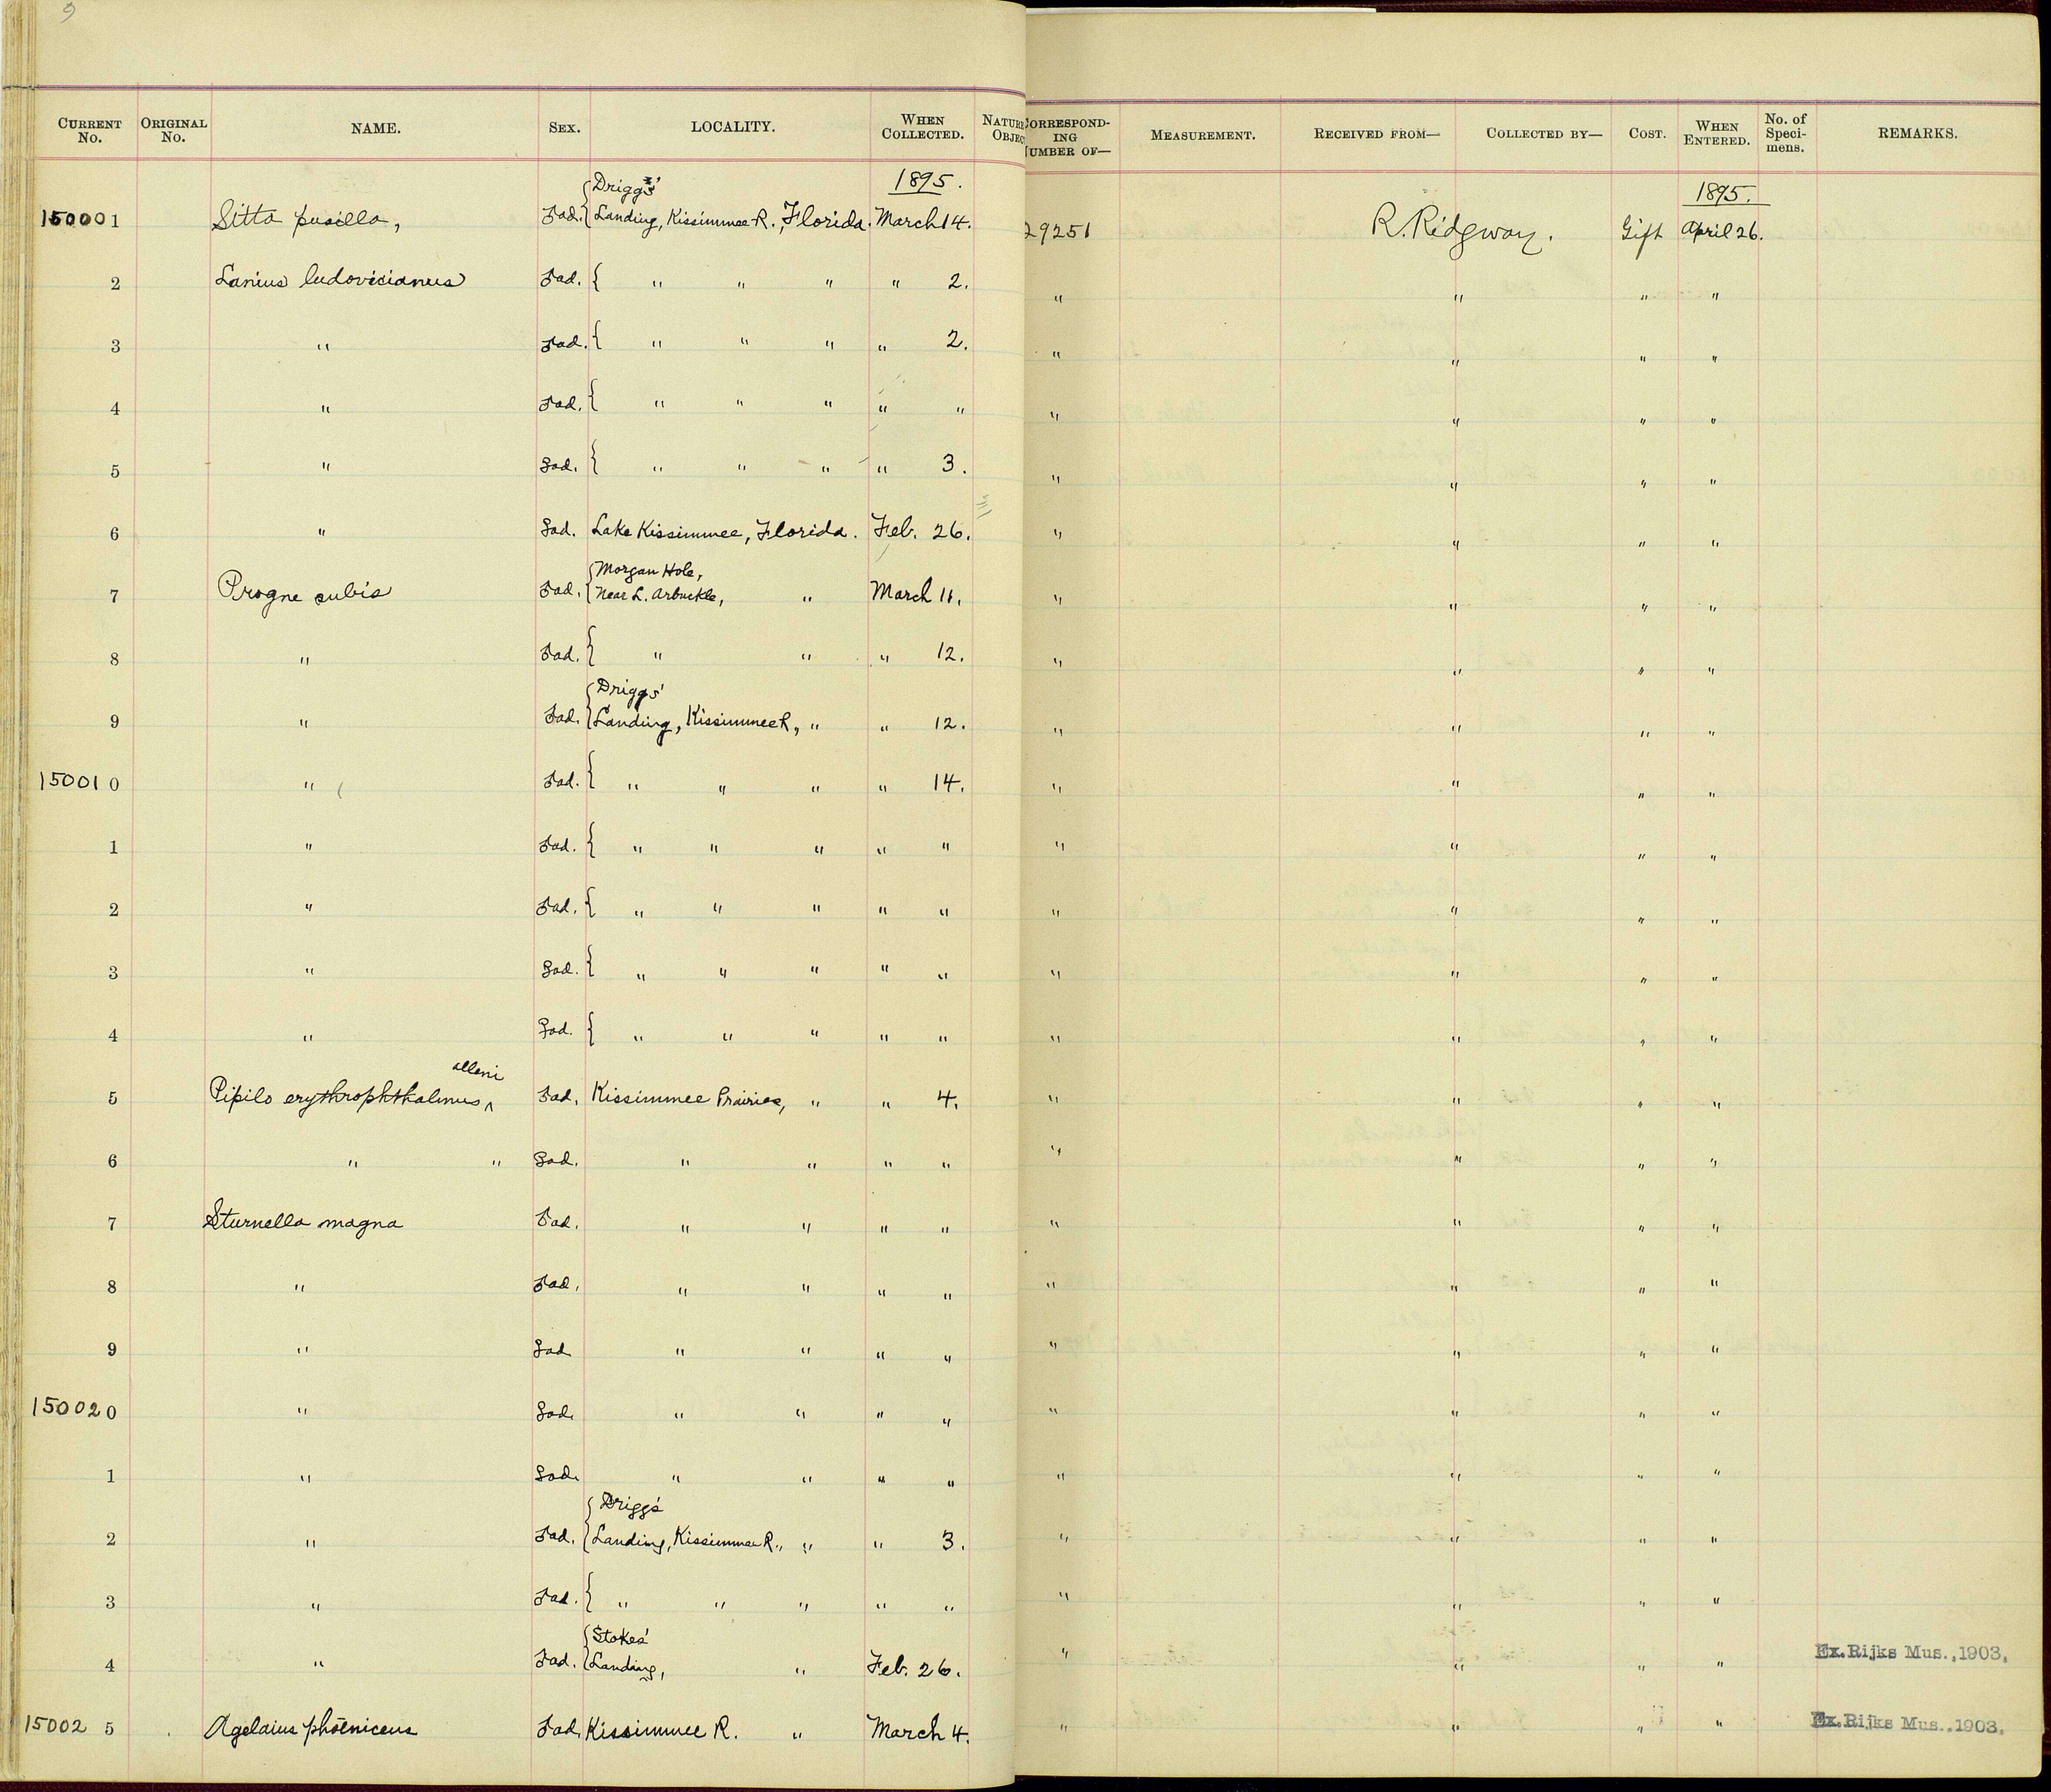 CURRENT No. ORIGINAL No. NAME. SEX. LOCALITY. WHEN COLLECTED. NATURE OBJEC CORRESPONDING NUMBER OF— MEASUREMENT. RECEIVED FROM— COLLECTED BY— COST. WHEN ENTERED. No. of Specimens. REMARKS.
1895. 1895.
Driggs'
150001 Sitta pusilla, ad. Landing, Kissimmee R., Florida. March 14. 29251 R. Ridgway. Gift April 26.
2 Lanius ludovicianus ad. { " " " " 2. " " " "
3 " ad. { " " " " 2. " " " "
4 " ad. { " " " " " " " " "
5 " ad. { " " " " 3. " " " "
6 " ad. Lake Kissimmee, Florida. Feb. 26. " " " "
Morgan Hole,
7 Progne subis ad. Near L. Arbuckle, " March 11. " " " "
8 " ad. { " " " 12. " " " "
Driggs'
9 " ad. Landing, Kissimmee R, " " 12. " " " "
150010 " ad. { " " " " 14. " " " "
1 " ad. { " " " " " " " " "
2 " ad. { " " " " " " " " "
3 " ad. { " " " " " " " " "
4 " ad. { " " " " " " " " "
alleni
5 Pipilo erythrophthalmus ^ ad. Kissimmee Prairies, " " 4. " " " "
6 " " ad. " " " " " " " "
7 Sturnella magna ad. " " " " " " " "
8 " ad. " " " " " " " "
9 " ad " " " " " " " "
150020 " ad. " " " " " " " "
1 " ad. " " " " " " " "
Driggs'
2 " ad. Landing, Kissimmee R., " " 3. " " " "
3 " ad. { " " " " " " " " "
Stokes'
4 " ad. Landing, " Feb. 26. " " " " Ex. Rijks Mus., 1903.
150025 Agelaius phoeniceus ad. Kissimmee R. " March 4. " " " " Ex. Rijks Mus., 1903.